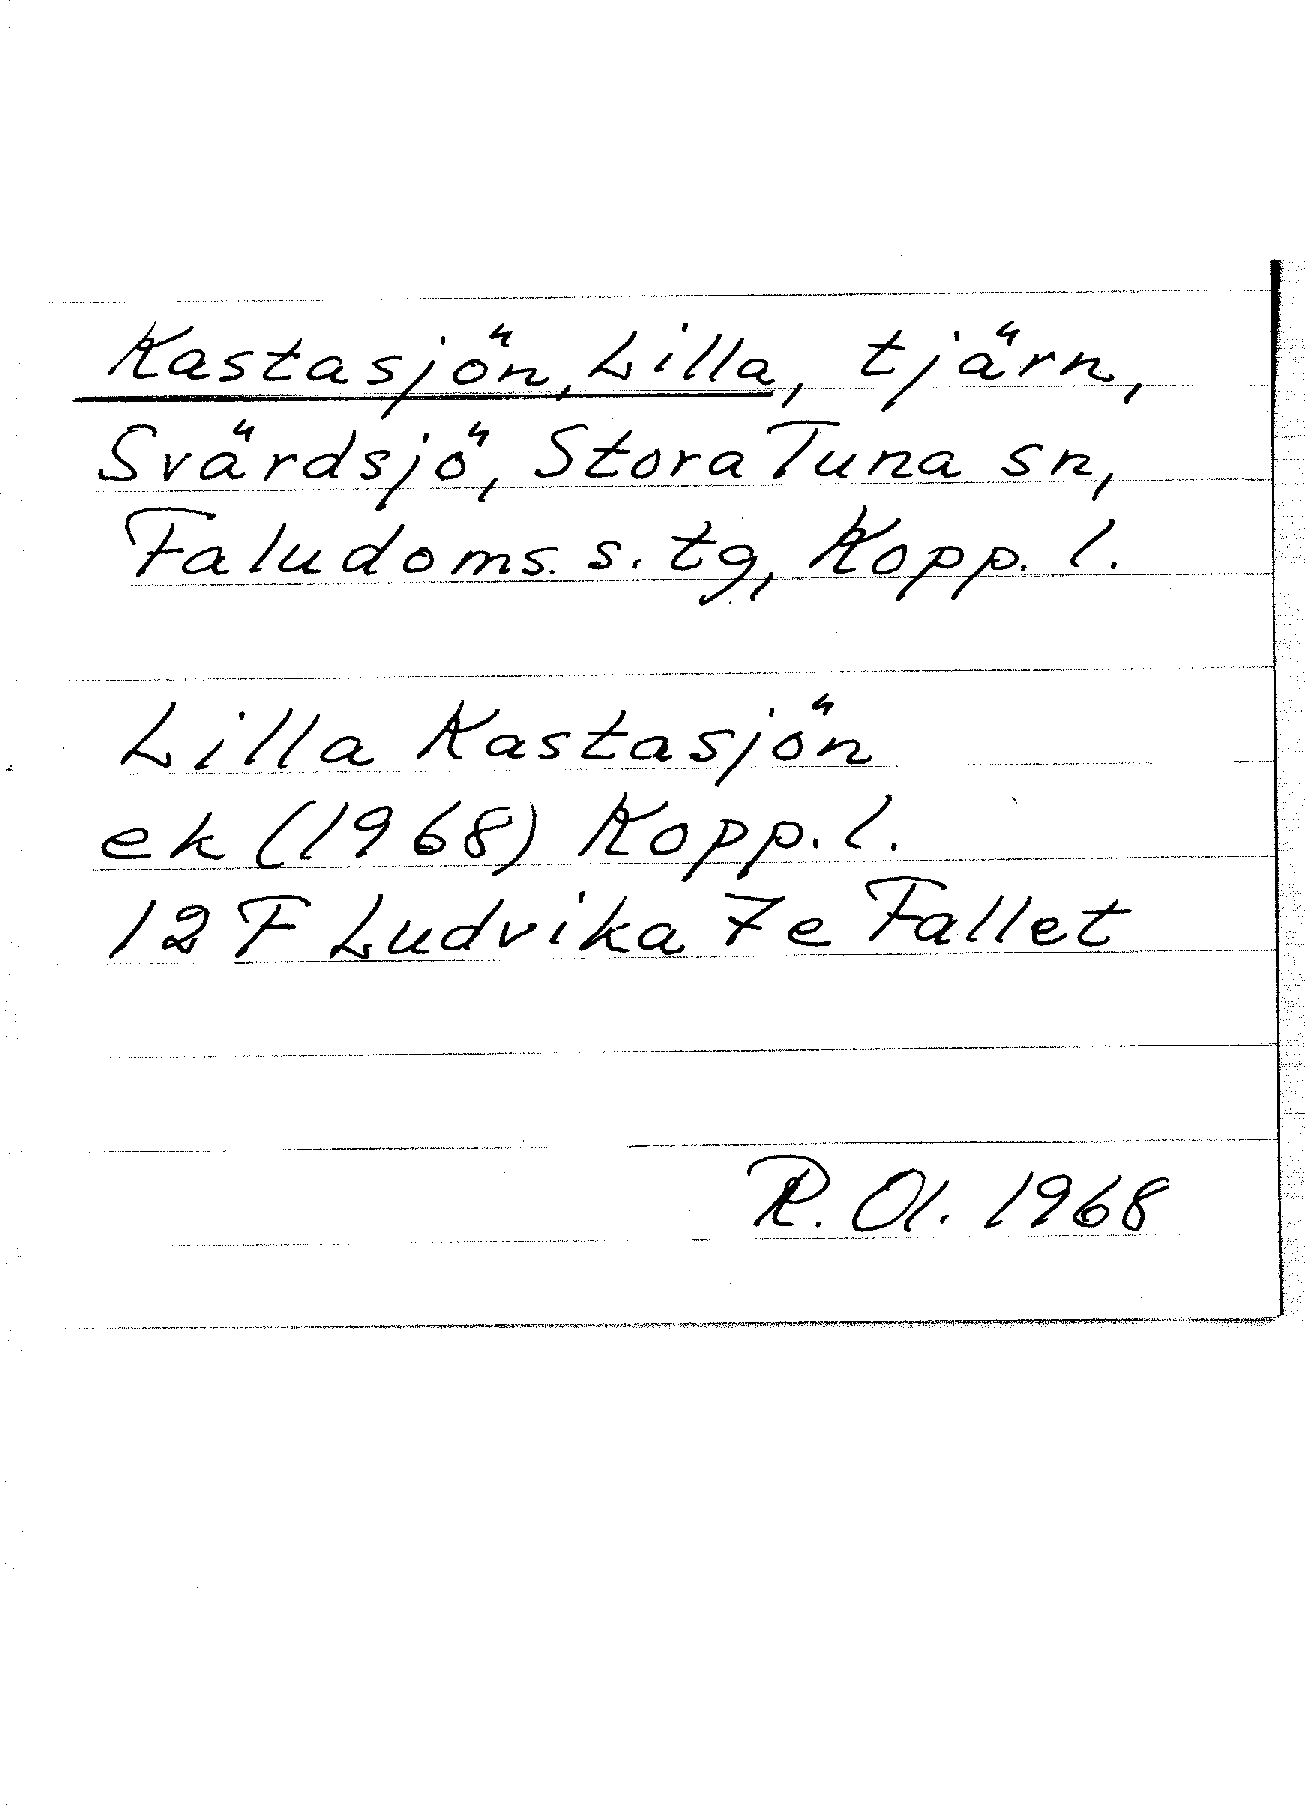 Kastasjön, Lilla, tjärn,
Svärdsjö, Stora Tuna sn,
Faludoms. s. tg, Kopp. l.
Lilla Kastasjön
ek (1968) Kopp. l.
12 F Ludvika 7e Fallet
R. Ol. 1968